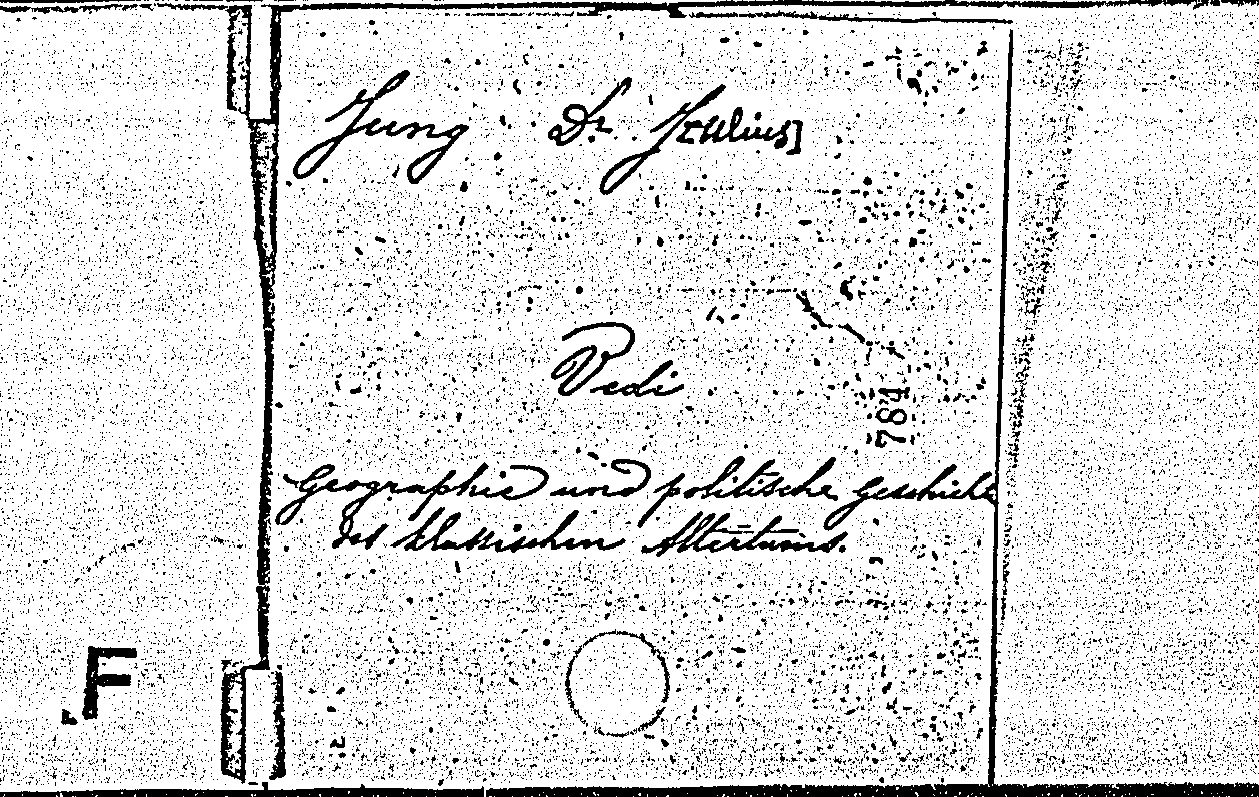 Jung Dr. J[ulius]
Vedi
784
Geographie und politische Geschichte
des klassischen Altertums.
F